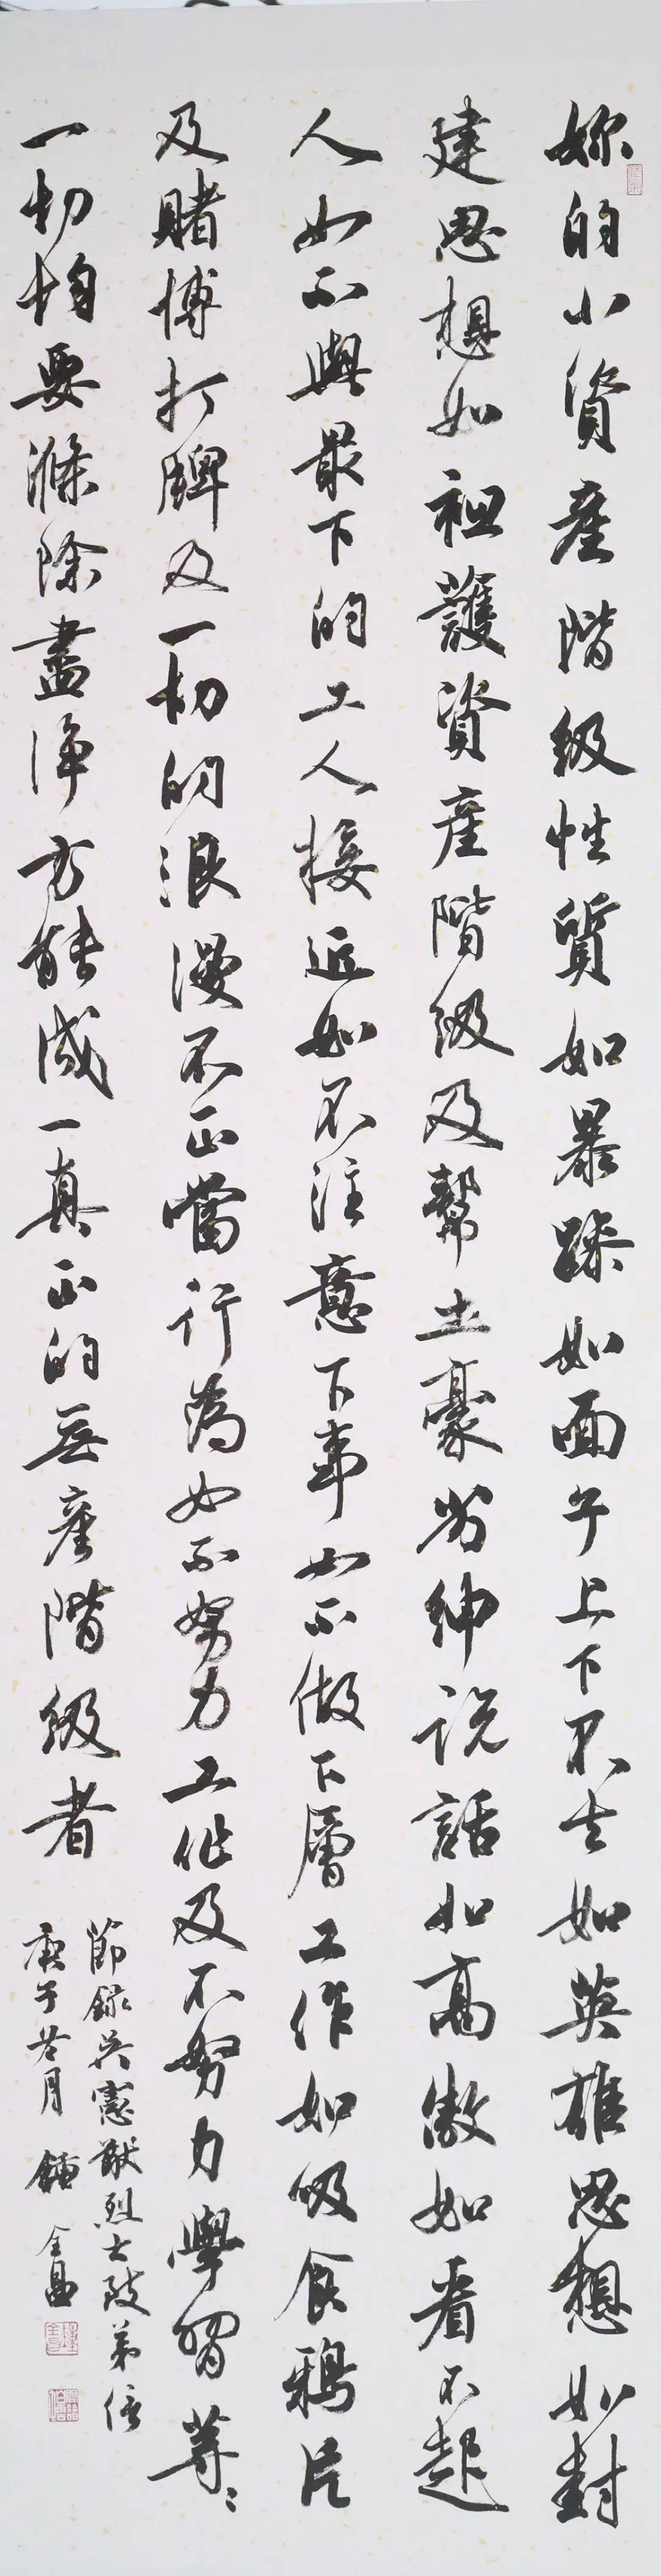 妳的小資產階級性質如暴躁如面子上下不去如英雄思想如封
建思想如袒護資產階級及幫土豪劣紳說話如高傲如看不起
人如不與最下的工人接近如不注意下事如不做下層工作如吸食鴉片
及賭博打牌及一切的浪漫不正當行為如不努力工作及不努力學習等々
一切均要滌除盡淨方能成一真正的無產階級者
節錄吳憲猷烈士致弟信
庚子荅月 鍾全昌